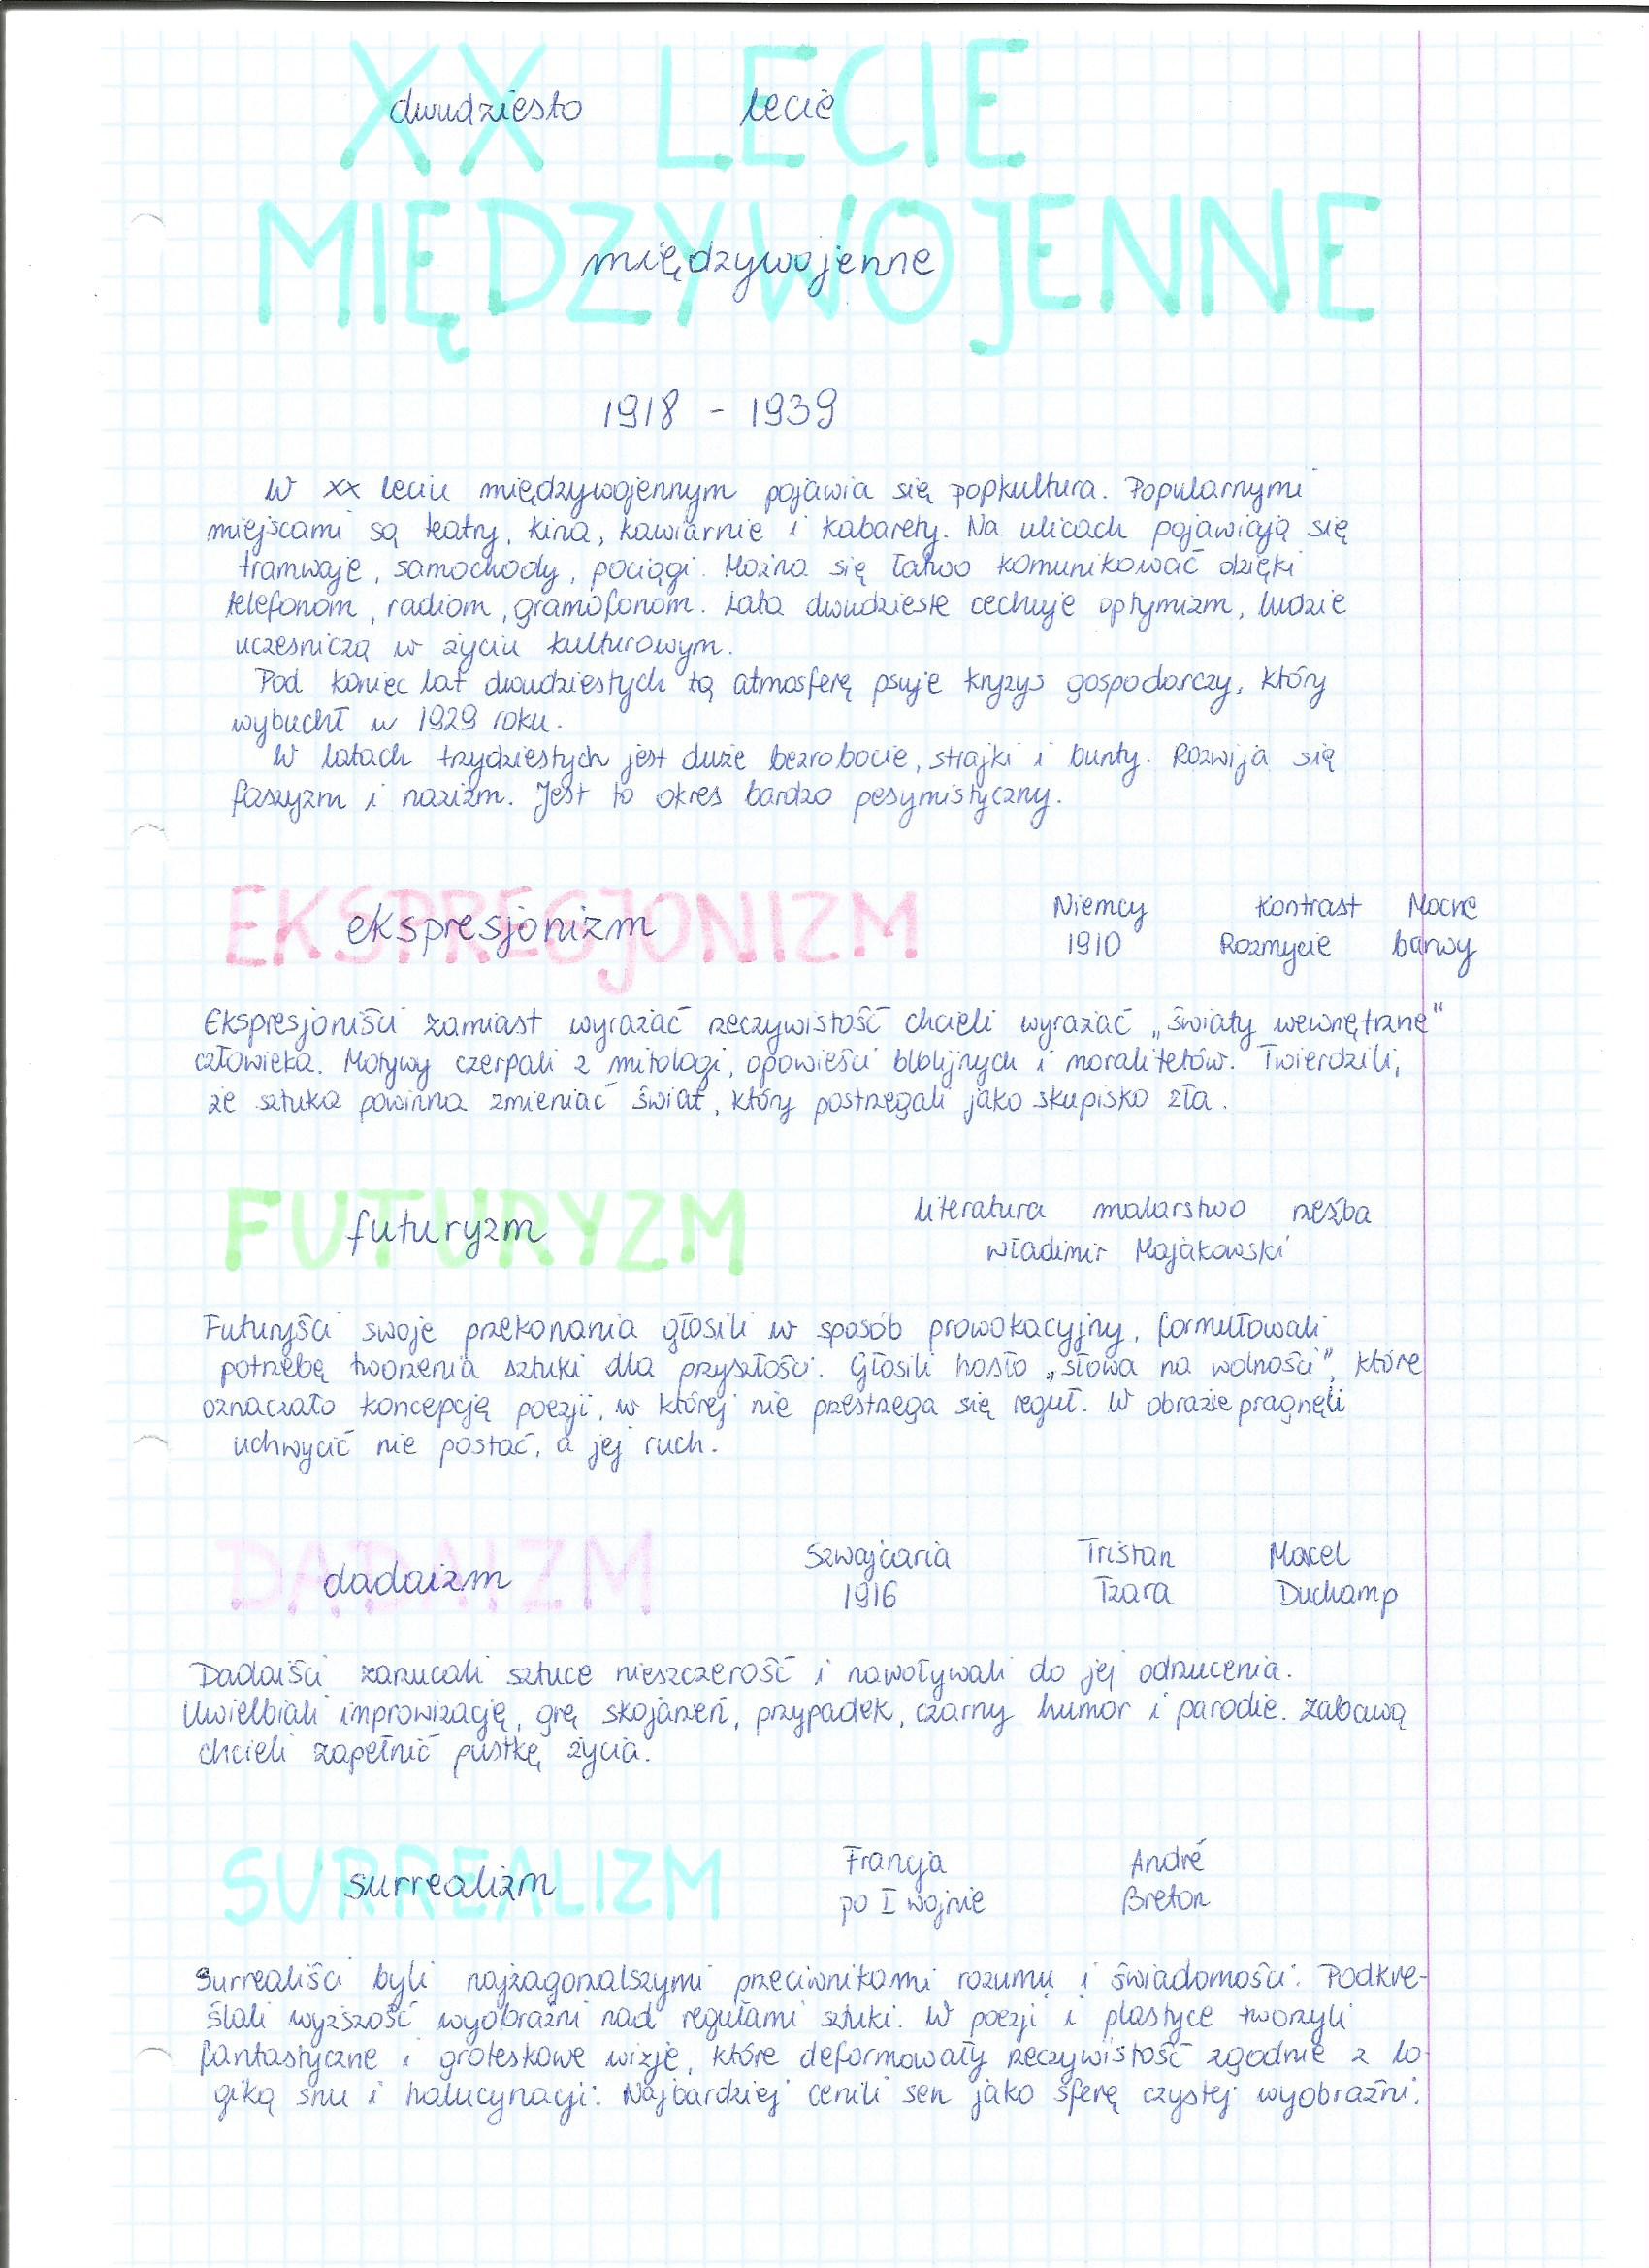 XX LECIE
dwudziesto lecie
MIĘDZYWOJENNE
międzywojenne
1918 - 1939
W XX leciu międzywojennym pojawia się popkultura. Popularnymi
miejscami są teatry, kina, kawiarnie i kabarety. Na ulicach pojawiają się
tramwaje, samochody, pociągi. Można się łatwo komunikować dzięki
telefonom, radiom, gramofonom. Lata dwudzieste cechuje optymizm, ludzie
uczesniczą w życiu kulturowym.
Pod koniec lat dwudziestych tą atmosferę psuje kryzys gospodarczy, który
wybuchł w 1929 roku.
W latach trzydziestych jest duże bezrobocie, strajki i bunty. Rozwija się
faszyzm i nazizm. Jest to okres bardzo pesymistyczny.
EKSPRESJONIZM
ekspresjonizm
Niemcy Kontrast Mocne
1910 Rozmycie barwy
Ekspresjoniści zamiast wyrażać rzeczywistość chcieli wyrażać „światy wewnętrzne"
człowieka. Motywy czerpali z mitologi, opowieści biblijnych i moralitetów. Twierdzili,
że sztuka powinna zmieniać świat, który postrzegali jako skupisko zła.
FUTURYZM
futuryzm
literatura malarstwo rzeźba
Władimir Majakowski
Futuryści swoje przekonania głosili w sposób prowokacyjny, formułowali
potrzebę tworzenia sztuki dla przyszłości. Głosili hasło „słowa na wolności", które
oznaczało koncepcję poezji, w której nie przestrzega się reguł. W obrazie pragnęli
uchwycić nie postać, a jej ruch.
DADAIZM
dadaizm
Szwajcaria Tristan Macel
1916 Tzara Duchamp
Dadaiści zarzucali sztuce nieszczerość i nawoływali do jej odrzucenia.
Uwielbiali improwizację, grę skojarzeń, przypadek, czarny humor i parodie. Zabawą
chcieli zapełnić pustkę życia.
SURREALIZM
surrealizm
Francja André
po I wojnie Breton
Surrealiści byli najzagorzalszymi przeciwnikami rozumu i świadomości. Podkre-
ślali wyższość wyobraźni nad regułami sztuki. W poezji i plastyce tworzyli
fantastyczne i groteskowe wizje, które deformowały rzeczywistość zgodnie z lo-
giką snu i halucynacji. Najbardziej cenili sen jako sferę czystej wyobraźni.